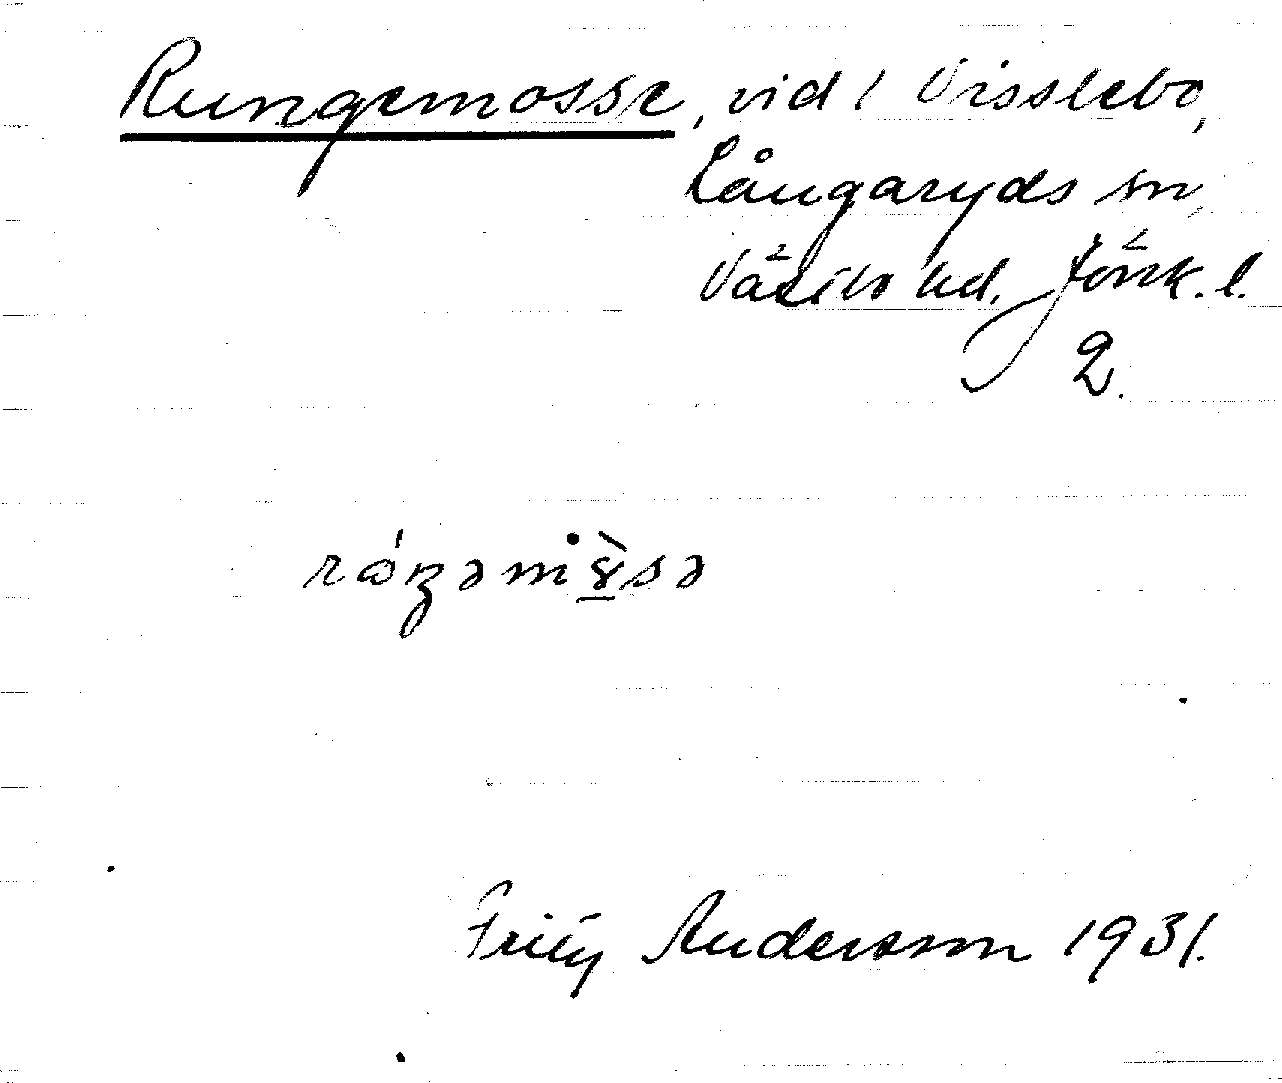 Rungemosse, vid 1 Visslebo,
Långaryds sn,
Västbo hd. Jönk. l.
2.
Fritz Andersson 1931.